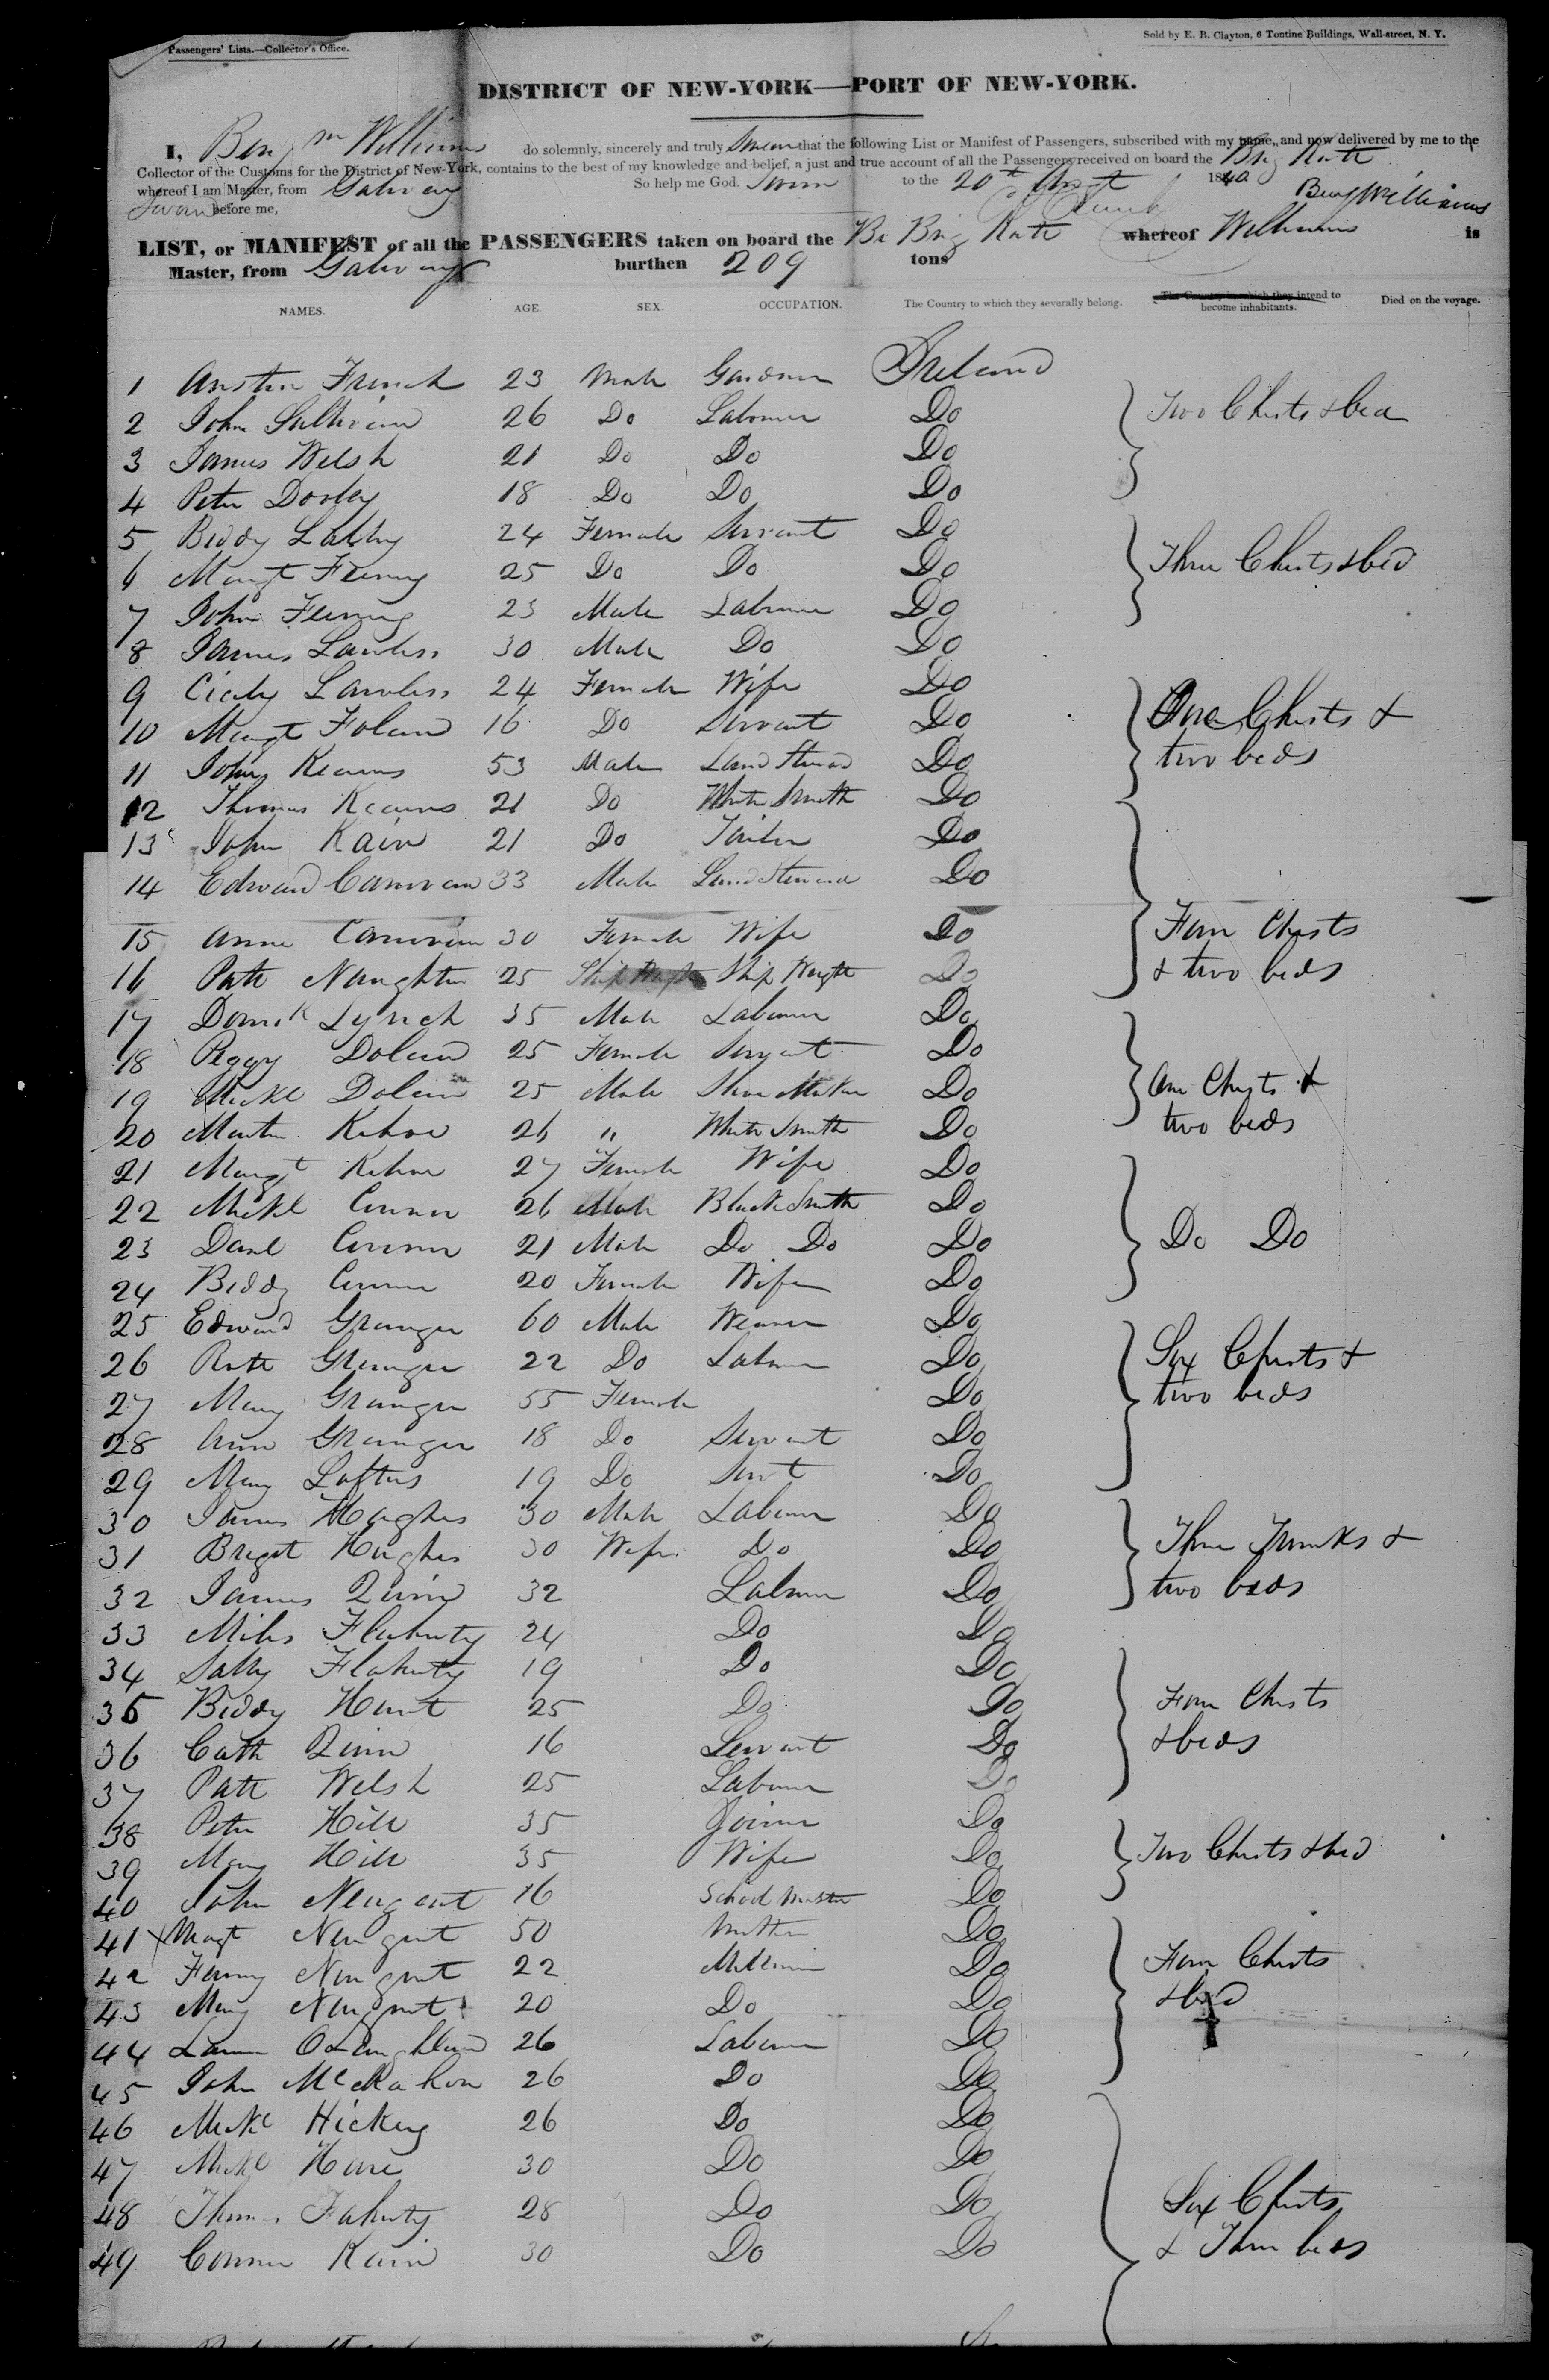 Passengers' Lists.—Collector's Office.
Sold by E. B. Clayton, 6 Tontine Buildings, Wall-street, N. Y.
DISTRICT OF NEW-YORK—PORT OF NEW-YORK.
I, Benjm Williams do solemnly, sincerely and truly swear that the following List or Manifest of Passengers, subscribed with my name, and now delivered by me to the
Collector of the Customs for the District of New-York, contains to the best of my knowledge and belief, a just and true account of all the Passengers received on board the Brig Kate
whereof I am Master, from Galway So help me God. Sworn to the 20th 1840 Benj Williams
Sworn before me,
LIST, or MANIFEST of all the PASSENGERS taken on board the Br Brig Kate whereof Williams is
Master, from Galway burthen 209 tons
NAMES. AGE. SEX. OCCUPATION. The Country to which they severally belong. The Country in which they intend to become inhabitants. Died on the voyage.
1 Austin French 23 Male Gardner Ireland
2 John Sullivan 26 Do Labourer Do Two Chests & bed
3 James Welsh 21 Do Do Do
4 Peter Dooley 18 Do Do Do
5 Biddy Lally 24 Female Servant Do
6 Margt Feeney 25 Do Do Do Three Chests & bed
7 John Feeney 23 Male Labourer Do
8 James Lawless 30 Male Do Do
9 Cicely Lawless 24 Female Wife Do
10 Margt Folan 16 Do Servant Do One Chests &
11 John Kearns 53 Male Land Steward Do two beds
12 Thomas Kearns 21 Do White Smith Do
13 John Kain 21 Do Tailor Do
14 Edward Canavan 33 Male Land Steward Do
15 Anne Canavan 30 Female Wife Do Four Chests
16 Patt Naughton 25 Ship Wright Do & two beds
17 Domk Lynch 35 Male Labourer Do
18 Peggy Dolan 25 Female Servant Do
19 Mickl Dolan 25 Male Shoe Maker Do One Chests &
20 Martin Kehoe 26 " White Smith Do two beds
21 Margt Kehoe 27 Female Wife Do
22 Mickl Connor 26 Male Black Smith Do
23 Danl Connor 21 Male Do Do Do Do Do
24 Biddy Connor 20 Female Wife Do
25 Edward Granger 60 Male Weaver Do
26 Patt Granger 22 Do Labourer Do Six Chests &
27 Mary Granger 55 Female Do two beds
28 Ann Granger 18 Do Servant Do
29 Mary Loftus 19 Do Servt Do
30 James Hughes 30 Male Labourer Do
31 Briget Hughes 30 Wife Do Do Three Trunks &
32 James Quinn 32 Labourer Do two beds
33 Miles Flaherty 24 Do Do
34 Sally Flaherty 19 Do Do
35 Biddy Hunt 25 Do Do Four Chests
36 Cath Quinn 16 Servant Do & beds
37 Patt Welsh 25 Labourer Do
38 Peter Hill 35 Joiner Do
39 Mary Hill 35 Wife Do Two Chests & bed
40 John Neugent 16 School Master Do
41 Magt Neugent 50 Mother Do
42 Fanny Neugent 22 Milliner Do Four Chests
43 Mary Neugent 20 Do Do & bed
44 O Laughlan 26 Labourer Do
45 John McMahon 26 Do Do
46 Mickl Hickey 26 Do Do
47 Mickl Hare 30 Do Do
48 Thomas Faherty 28 Do Do Six Chests
49 Connor Kain 30 Do Do & Three beds